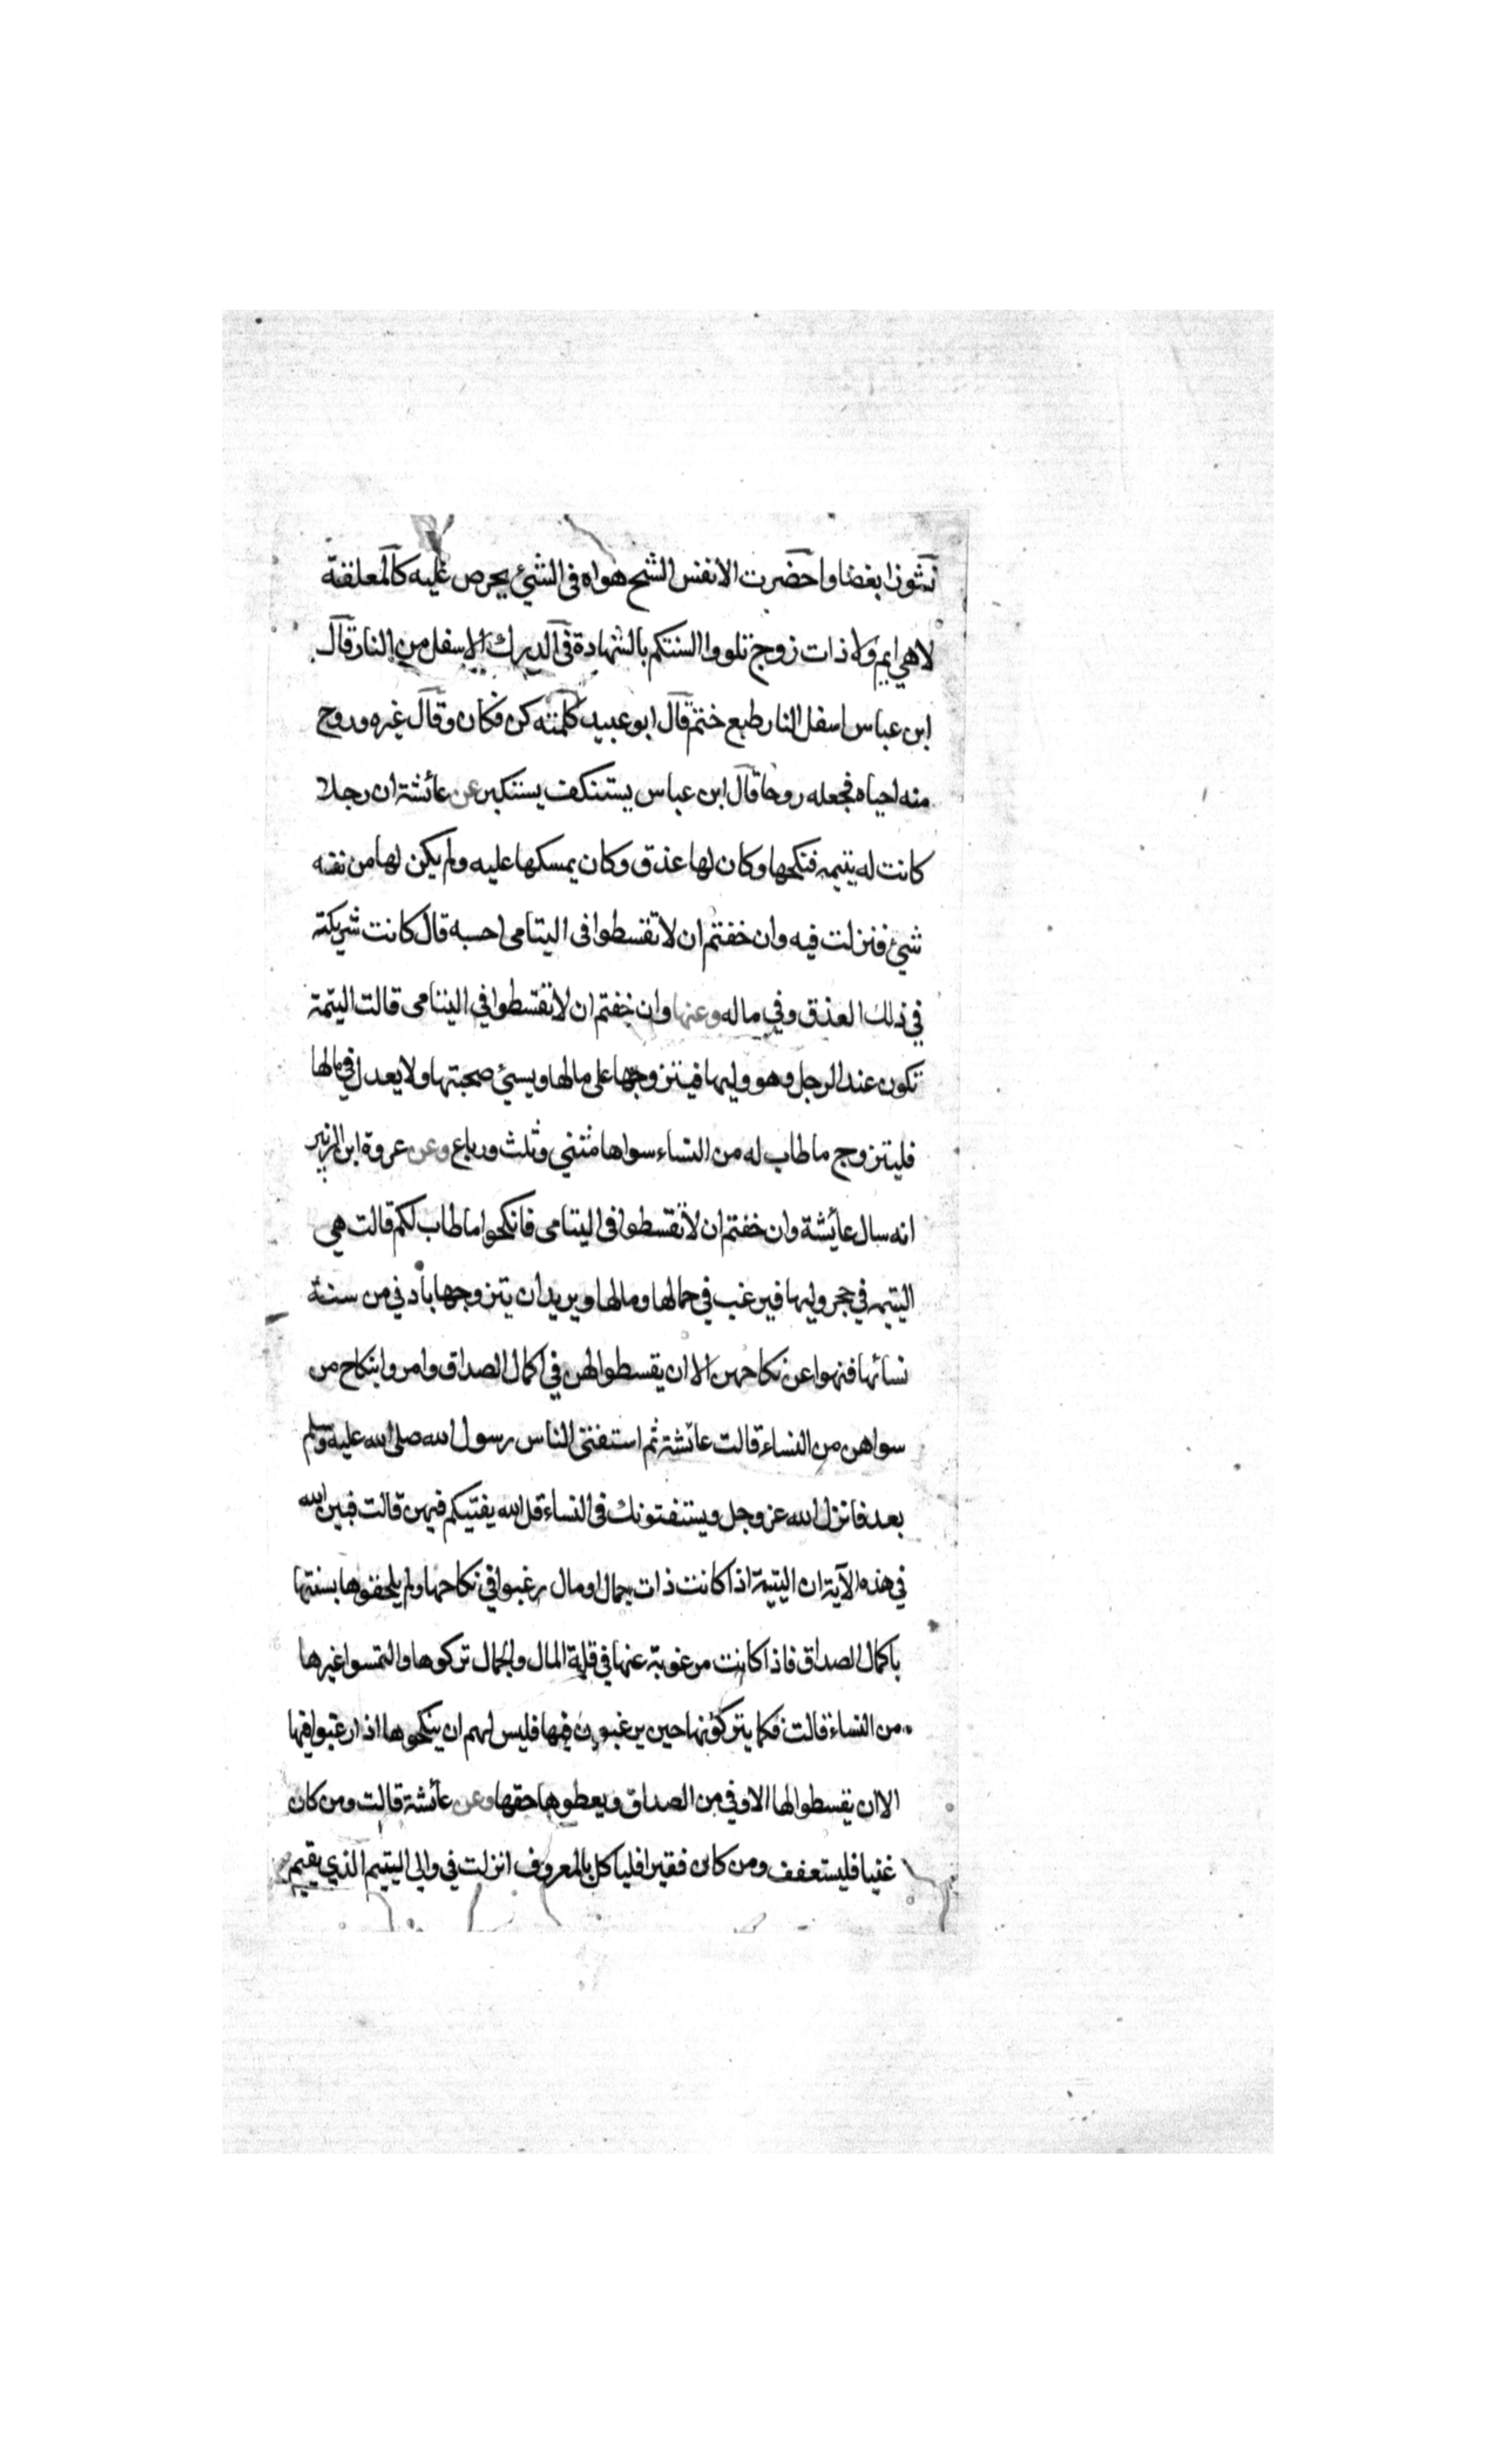 نشوزا بغضا واحضرت الانفس الشح هواه في الشيئ يحرص عليه كالمعلقة
لا هي ايم ولا ذات زوج تلووا السنتكم بالشهادة في الدرك الاسفل من النار قال
ابن عباس اسفل النار طبع ختم قال ابو عبيد كلمته كن فكان وقال غيره وروح
منه احياه فجعله روحا قال ابن عباس يستنكف يستكبر عن عائشة ان رجلا
كانت له يتيمه فنكحها وكان لها عذق وكان يمسكها عليه ولم يكن لها من نفسه
شيئ فنزلت فيه وان خفتم ان لا تقسطوا في اليتامى احسبه قال كانت شريكته
في ذلك العذق وفي ماله وعنها وان خفتم ان لا تقسطوا في اليتامى قالت اليتمة
تكون عند الرجل وهو وليها فيتزوجها على مالها ويسيئ صحبتها ولا يعدل في مالها
فليتزوج ما طاب له من النساء سواها مثنى وثلث ورباع وعن عروة ابن الزبير
انه سال عائشة وان خفتم ان لا تقسطوا في اليتامى فانكحوا ما طاب لكم قالت هي
اليتيمه في حجر وليها فيرغب في جمالها ومالها ويريد ان يتزوجها بادنى من سنة
نسائها فنهوا عن نكاحهن الا ان يقسطوا لهن في اكمال الصداق وامروا بنكاح من
سواهن من النساء قالت عائشة ثم استفتى الناس رسول الله صلى الله عليه وسلم
بعد فانزل الله عز وجل ويستفتونك في النساء قل الله يفتيكم فيهن قالت فبين الله
في هذه الآية ان اليتيمة اذا كانت ذات جمال او مال رغبوا في نكاحها ولم يلحقوها بسنتها
باكمال الصداق فاذا كانت مرغوبة عنها في قلة المال والجمال تركوها والتمسوا غيرها
من النساء قالت فكما يتركونها حين يرغبون فيها فليس لهم ان ينكحوها اذا رغبوا فيها
الا ان يقسطوا لها الاوفى من الصداق ويعطوها حقها وعن عائشة قالت ومن كان
غنيا فليستعفف ومن كان فقيرا فلياكل بالمعروف انزلت في والي اليتيم الذي يقيم